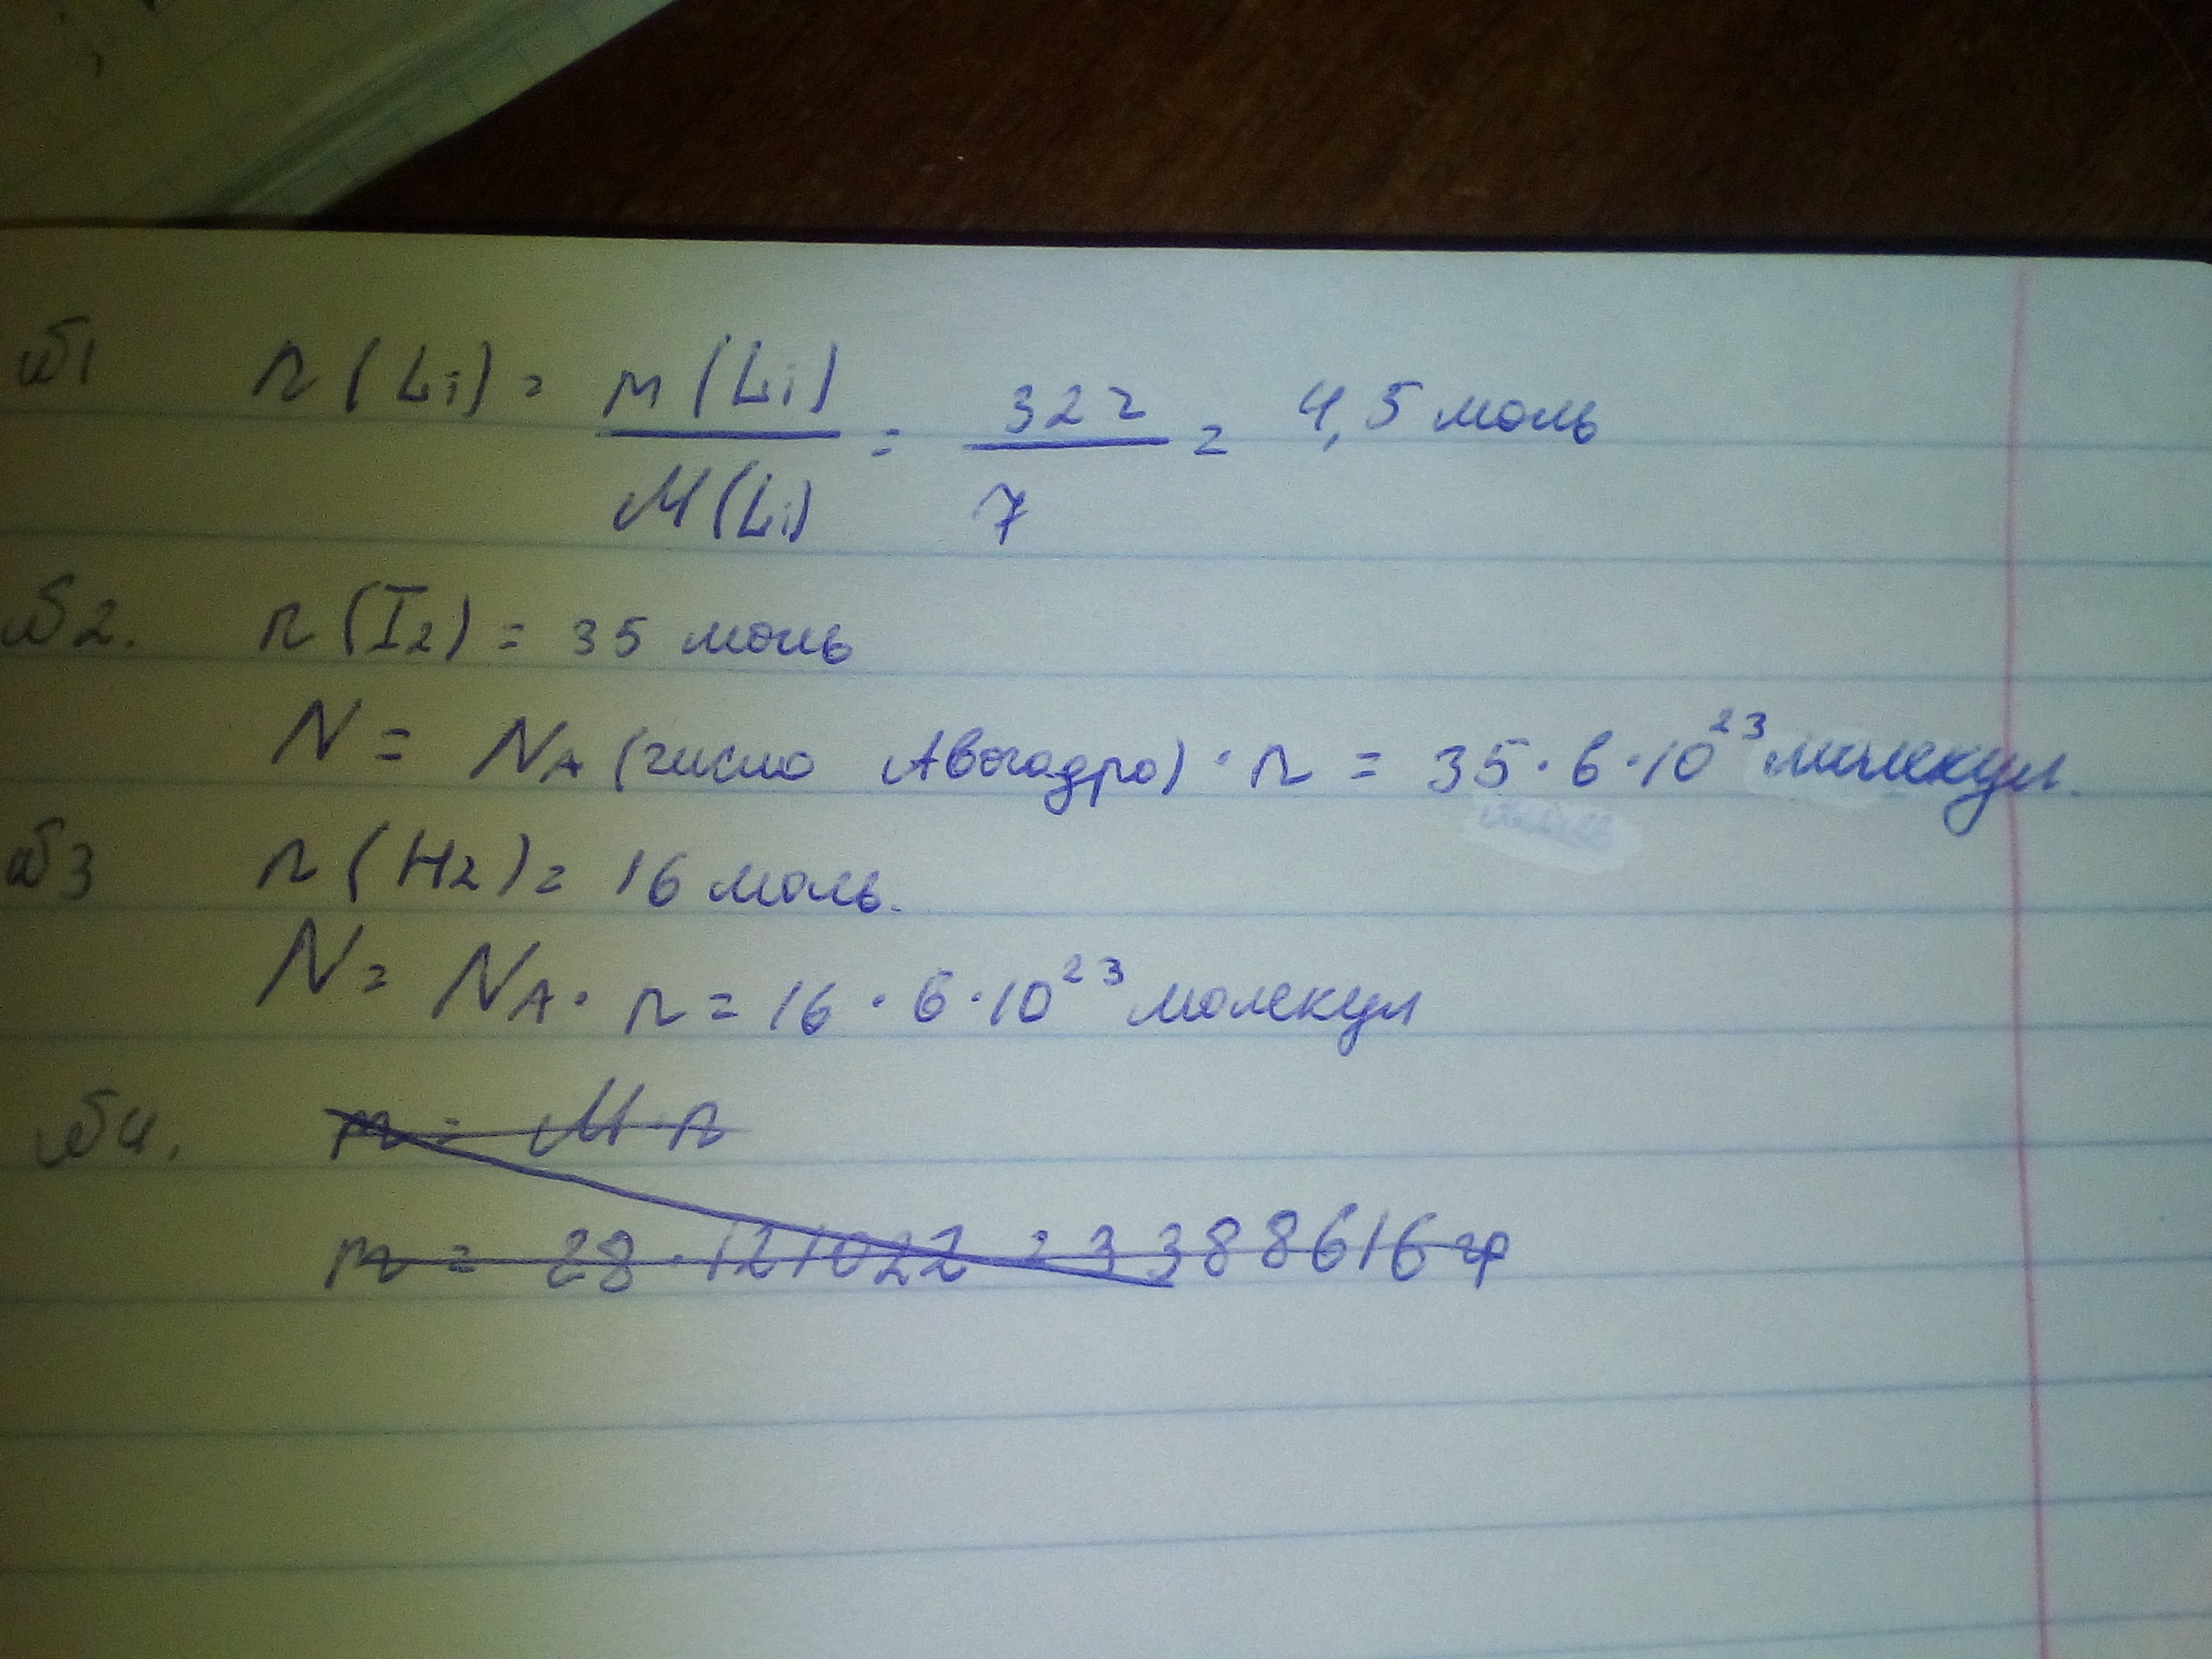 №1 n(Li) = m(Li)/M(Li) = 32г/7 = 4,5 моль
№2. n(I2) = 35 моль
N = NA (число Авогадро) · n = 35 · 6 · 10^23 молекул.
№3 n(H2) = 16 моль.
N = NA · n = 16 · 6 · 10^23 молекул
№4. m = M · n
m = 28 · 121022 = 3388616 гр